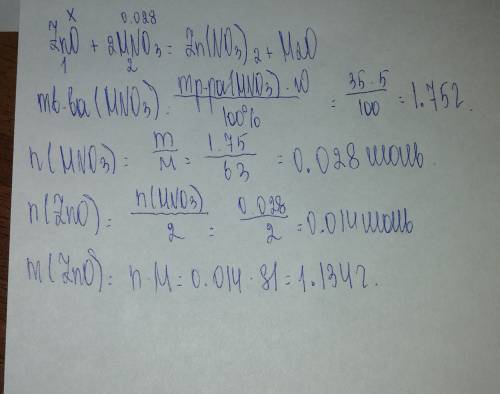 x 0.028
ZnO + 2HNO3 = Zn(NO3)2 + H2O
1 2
mв-ва(HNO3) = mр-ра(HNO3)·ω / 100% = 35·5 / 100 = 1.75г.
n(HNO3) = m / M = 1.75 / 63 = 0.028 моль.
n(ZnO) = n(HNO3) / 2 = 0.028 / 2 = 0.014 моль
m(ZnO) = n·M = 0.014·81 = 1.134г.